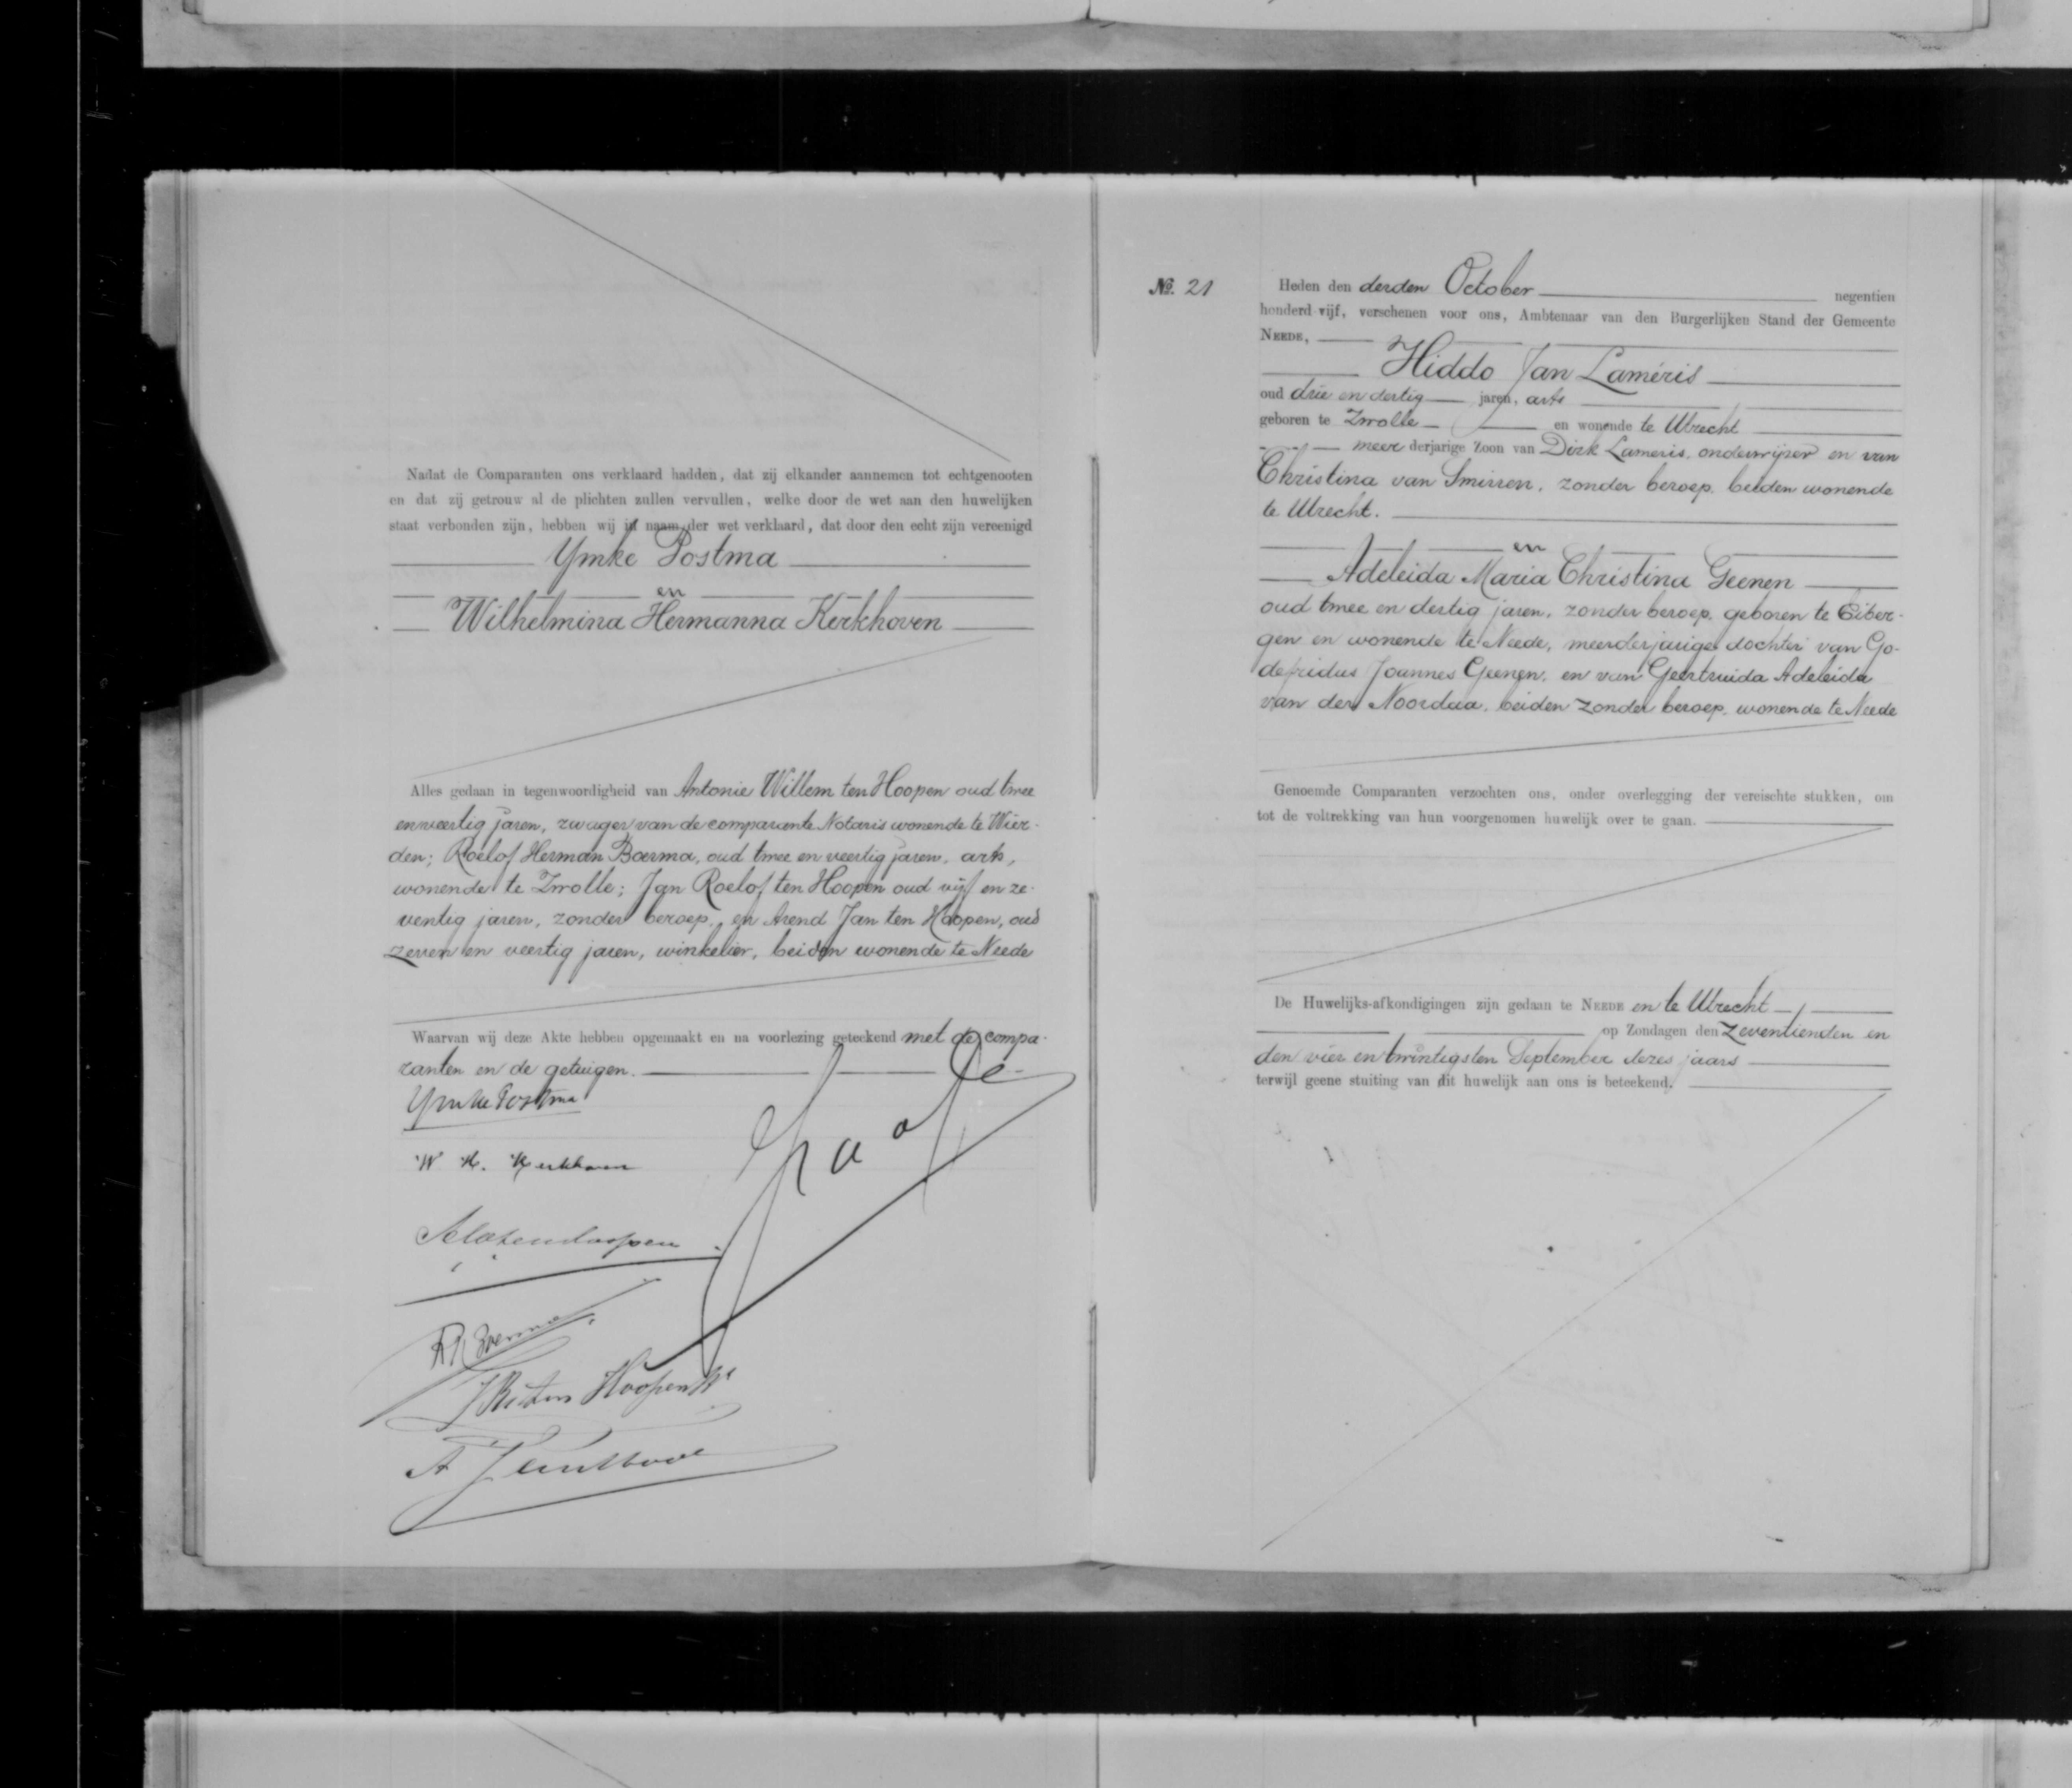 Nadat de Comparanten ons verklaard hadden, dat zij elkander aannemen tot echtgenooten
en dat zij getrouw al de plichten zullen vervullen, welke door de wet aan den huwelijken
staat verbonden zijn, hebben wij in naam der wet verklaard, dat door den echt zijn vereenigd
Ymke Postma
en
Wilhelmina Hermanna Kerkhoven
Alles gedaan in tegenwoordigheid van Antonie Willem ten Hoopen oud twee
en veertig jaren, zwager van de comparante Notaris wonende te Wier-
den; Roelof Herman Boerma, oud twee en veertig jaren, arts,
wonende te Zwolle; Jan Roelof ten Hoopen oud vijf en ze-
ventig jaren, zonder beroep, en Arend Jan ten Hoopen, oud
zeven en veertig jaren, winkelier, beiden wonende te Neede
Waarvan wij deze Akte hebben opgemaakt en na voorlezing geteekend met de compa-
ranten en de getuigen.
Ymke Postma
W. H. Kerkhoven
No. 21
Heden den derden October negentien
honderd vijf, verschenen voor ons, Ambtenaar van den Burgerlijken Stand der Gemeente
NEEDE,
Hiddo Jan Laméris
oud drie en dertig jaren, arts
geboren te Zwolle en wonende te Utrecht
meer derjarige Zoon van Dirk Lameris, onderwijzer en van
Christina van Smirren, zonder beroep, beiden wonende
te Utrecht.
en
Adeleida Maria Christina Geenen
oud twee en dertig jaren, zonder beroep, geboren te Eiber-
gen en wonende te Neede, meerderjarige dochter van Go-
defridus Joannes Geenen, en van Geertruida Adeleida
van der Noordaa, beiden zonder beroep, wonende te Neede
Genoemde Comparanten verzochten ons, onder overlegging der vereischte stukken, om
tot de voltrekking van hun voorgenomen huwelijk over te gaan.
De Huwelijks-afkondigingen zijn gedaan te NEEDE en te Utrecht
op Zondagen den zeventienden en
den vier en twintigsten September dezes jaars
terwijl geene stuiting van dit huwelijk aan ons is beteekend.